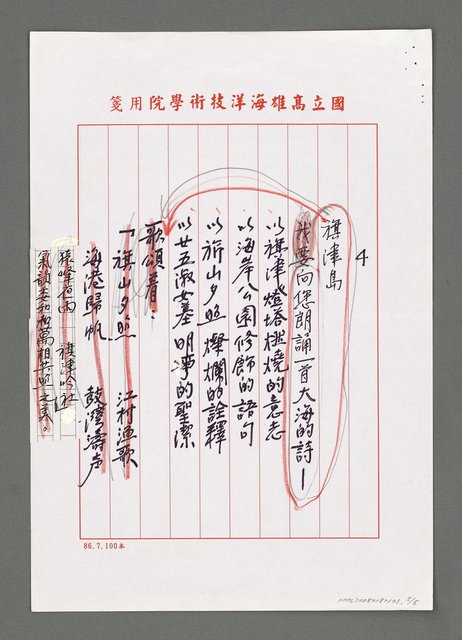 國立高雄海洋技術學院用箋
4
旗津島
我要向您朗誦一首大海的詩—
以旗津燈塔燃燒的意志
以海岸公園修飾的語句
以旂山夕照燦爛的詮釋
以廿五淑女墓明淨的聖潔
歌頌着
「旗山夕照 江村漁歌
海港歸帆 鼓灣濤声
旗津吟社」
共
之美。
86.7.100本
NMTL20080180101, 5/5